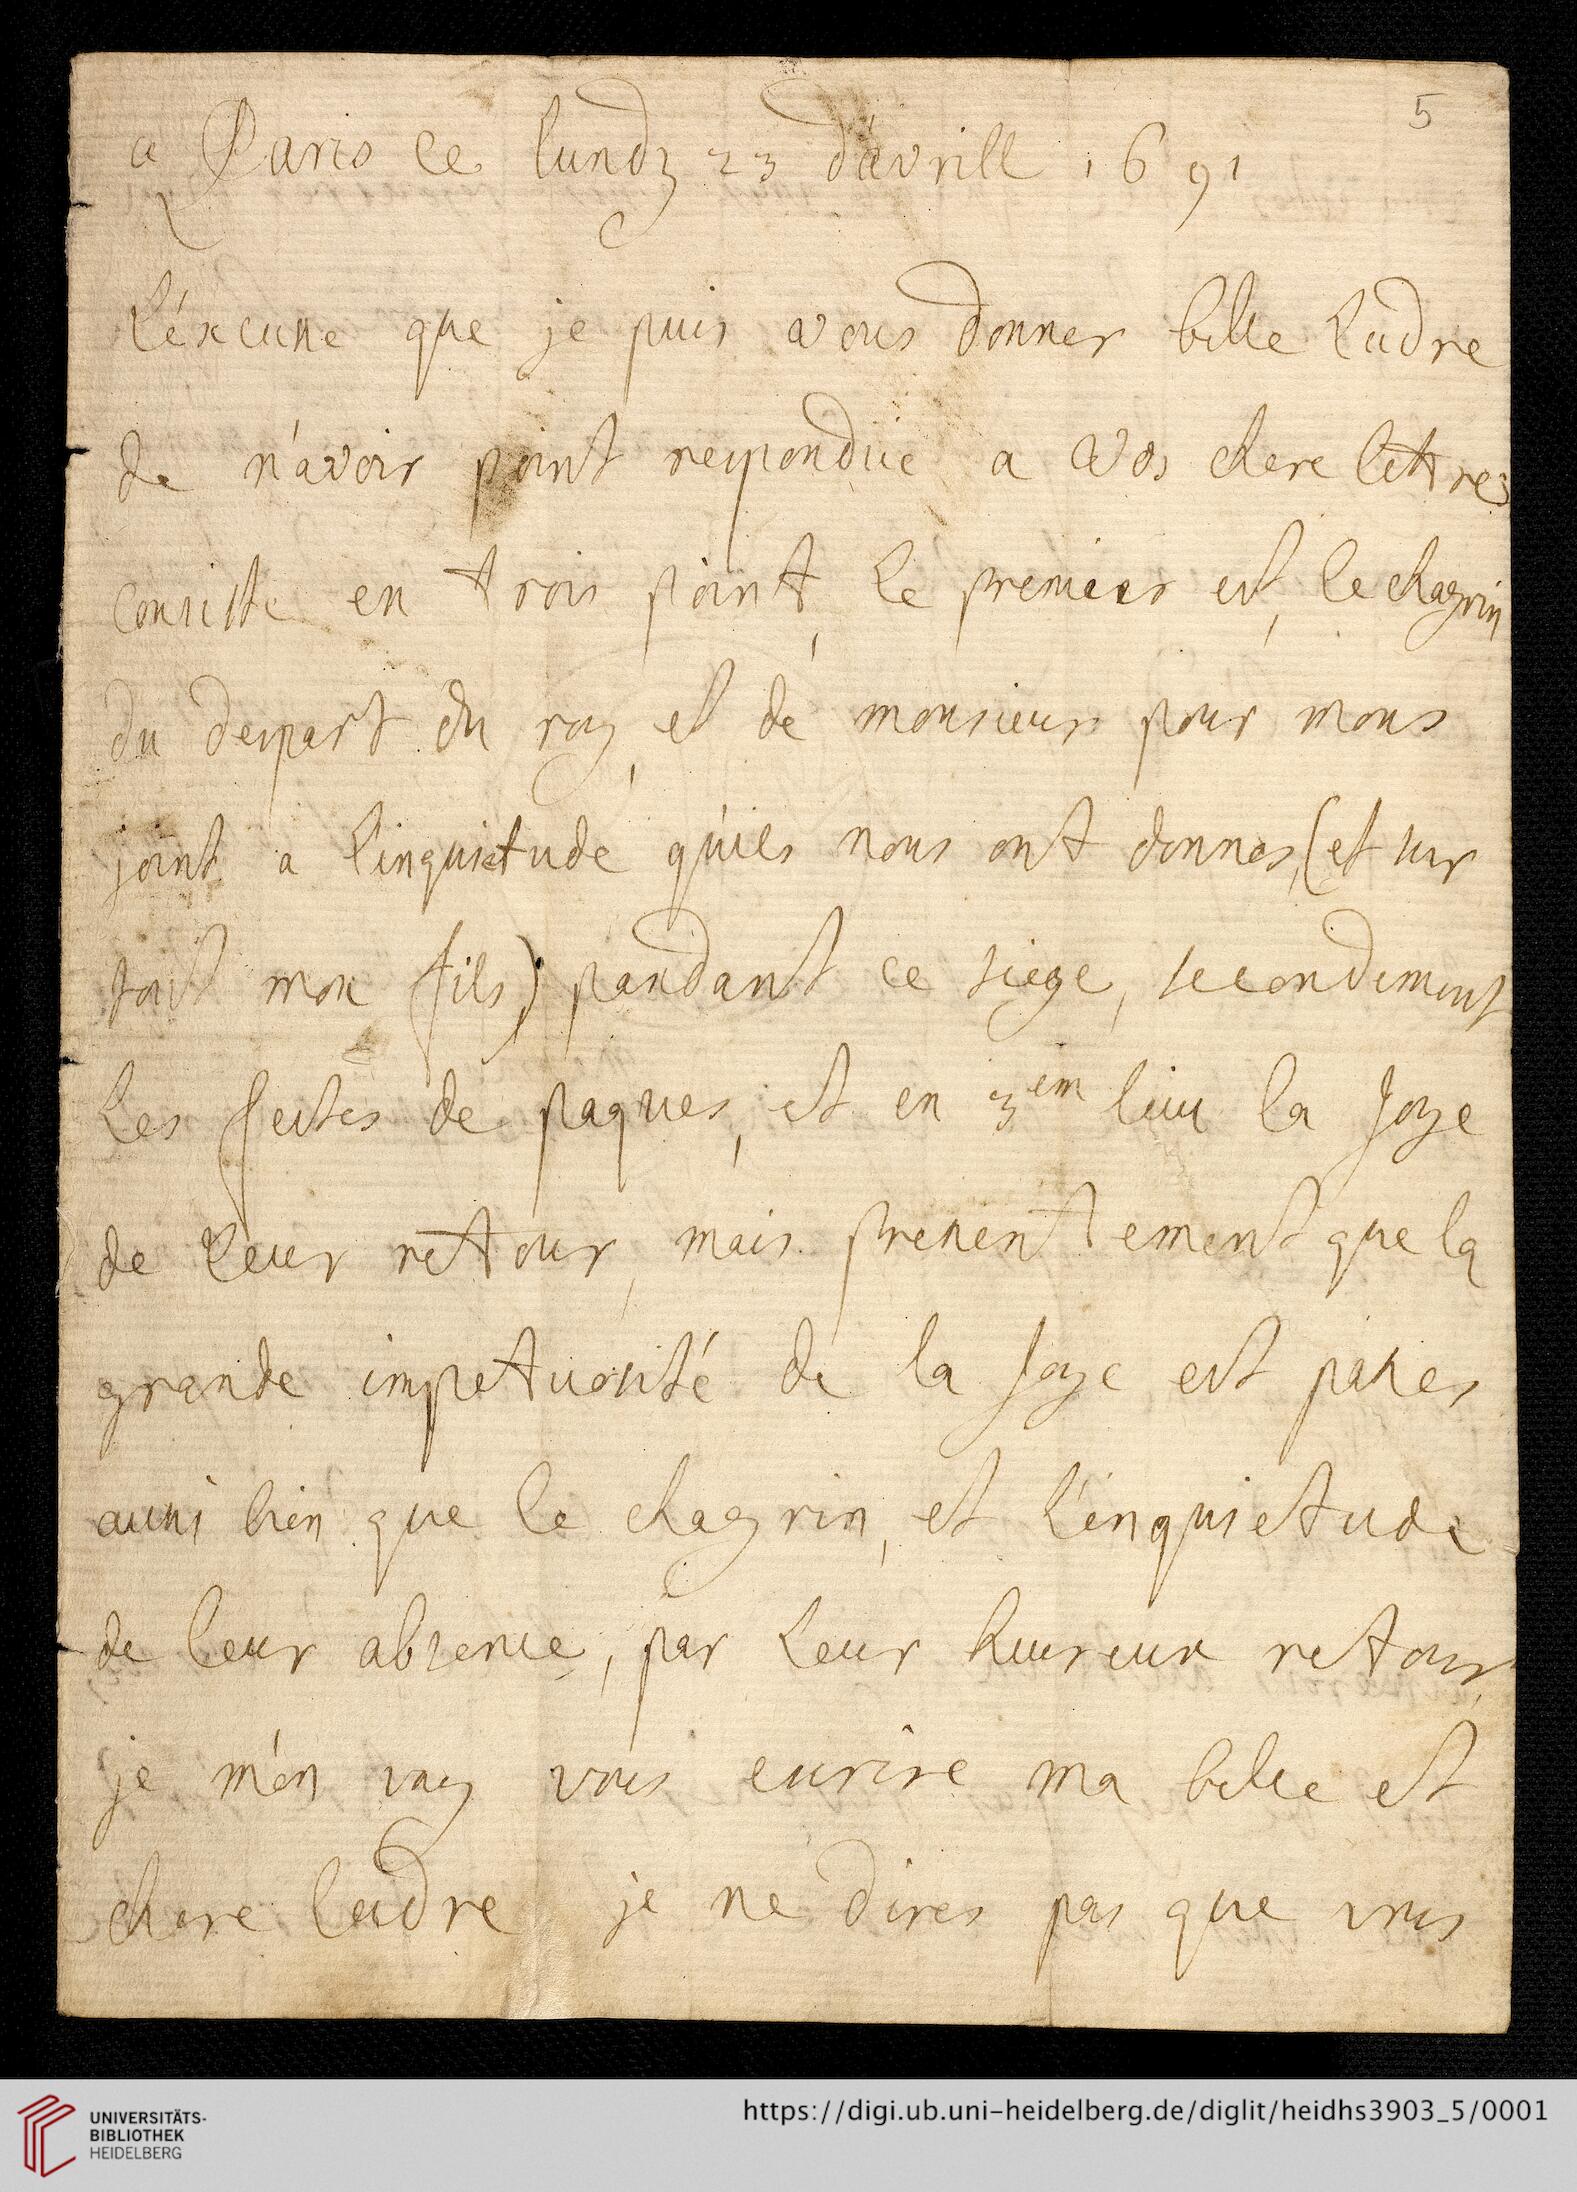 5
a Paris ce lundy 23 d'avrill 1691
L'éxcuse que je puis avous donner belle Ludre
de n'avoir point respondue a vos chere lettres
consiste en trois point, le premier est, le chagrin
du despart du roy, et de monsieur pour mons
joint a l'inquietude qu'ils nous ont donnes, (et sur
tout mon fils) pandant ce siege, secondement
Les festes de paques, et en 3em lieu la Joye
de Leur retour, mais presentement que la
grande impetuosité de la Joye est passes
aussi bien que le chagrin, et L'inquietude
de leur absence, par Leur heureux retour,
je m'en vay vous escrire ma belle et
chere ludre je ne dires pas que vous
UNIVERSITÄTS-
BIBLIOTHEK
HEIDELBERG
https://digi.ub.uni-heidelberg.de/diglit/heidhs3903_5/0001